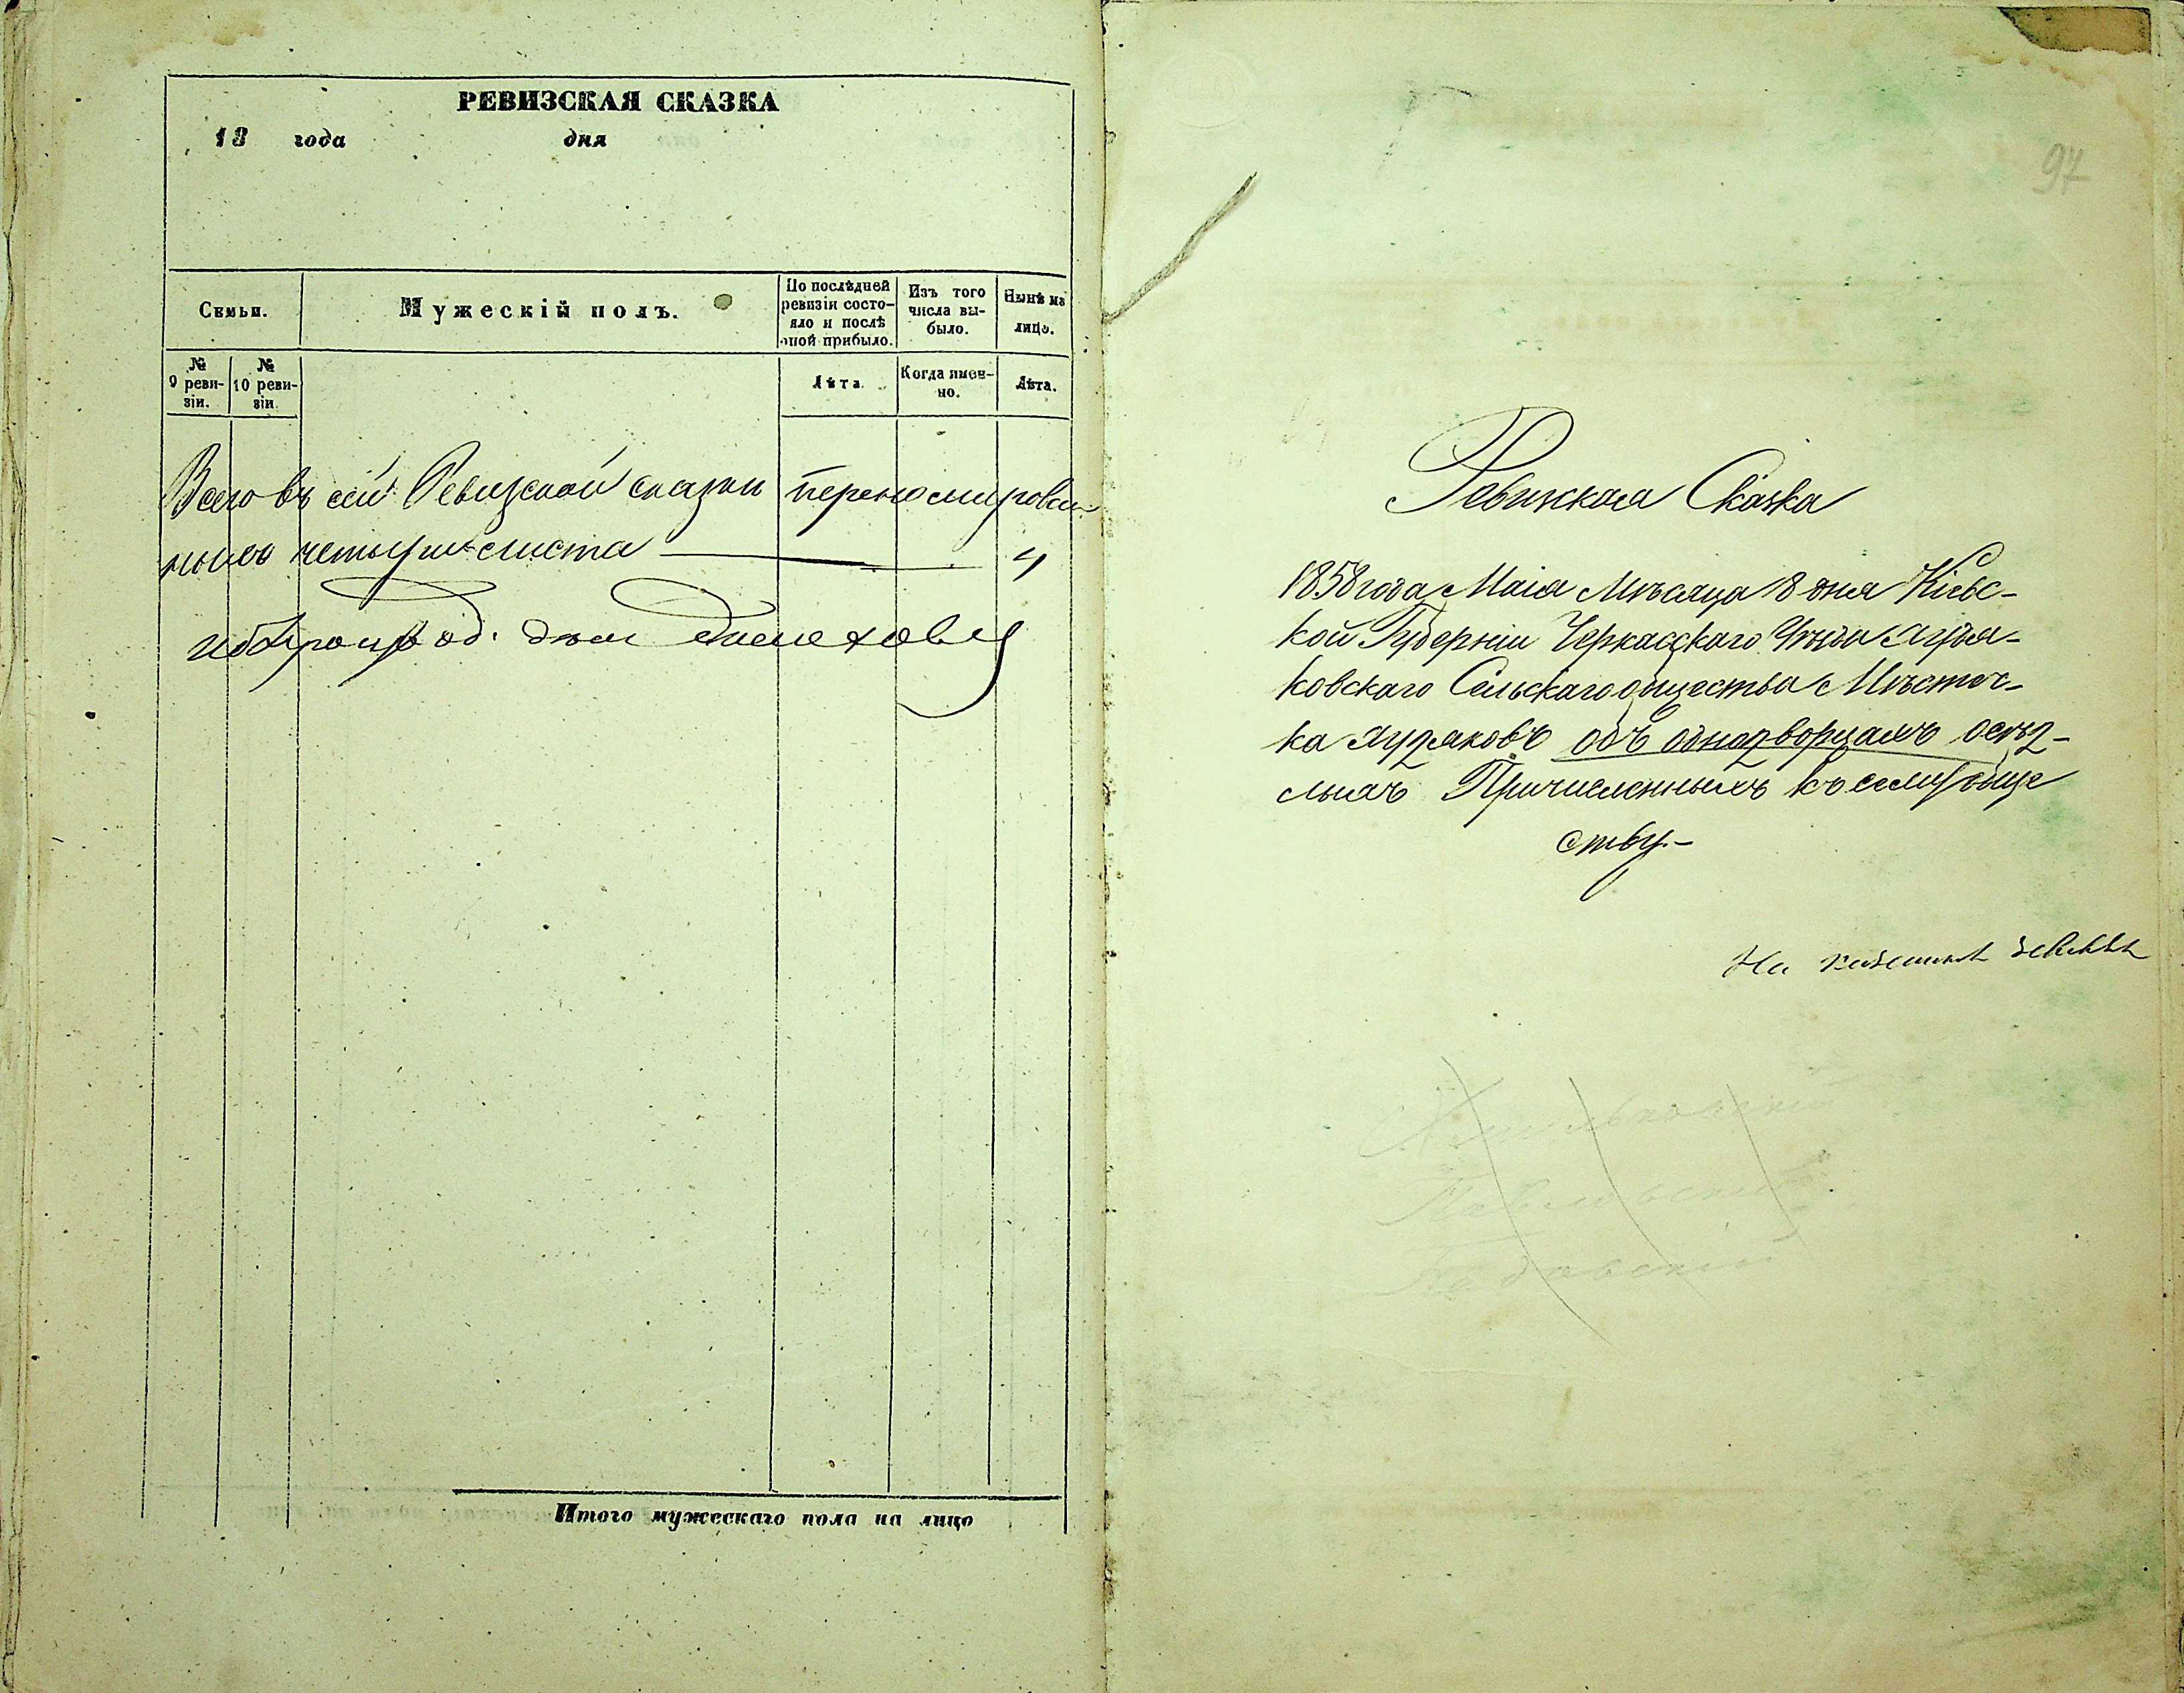 РЕВИЗСКАЯ СКАЗКА
18 года дня
Семьи.
Мужескій полъ.
По послѣдней ревизіи состо-
яло и послѣ оной прибыло.
Изъ того числа вы-
было.
Нынѣ на лицо.
№ 9 реви-
зіи.
№ 10 реви-
зіи.
Лѣта.
Когда имен-
но.
Лѣта.
Всего въ сей Ревизской сказки перенумерован
ныхъ четыре листа 4
Итого мужескаго пола на лицо
97
Ревижкая Сказка
1858 года Маія Мѣсяца 8 дня Кіевс-
кой Губерніи Черкасскаго Уѣзда
ковскаго Сельскаго общества Мѣстеч-
ка объ однодворцахъ осѣд-
лыхъ Причисленныхъ къ сему обще
ству.-
На казенной землѣ